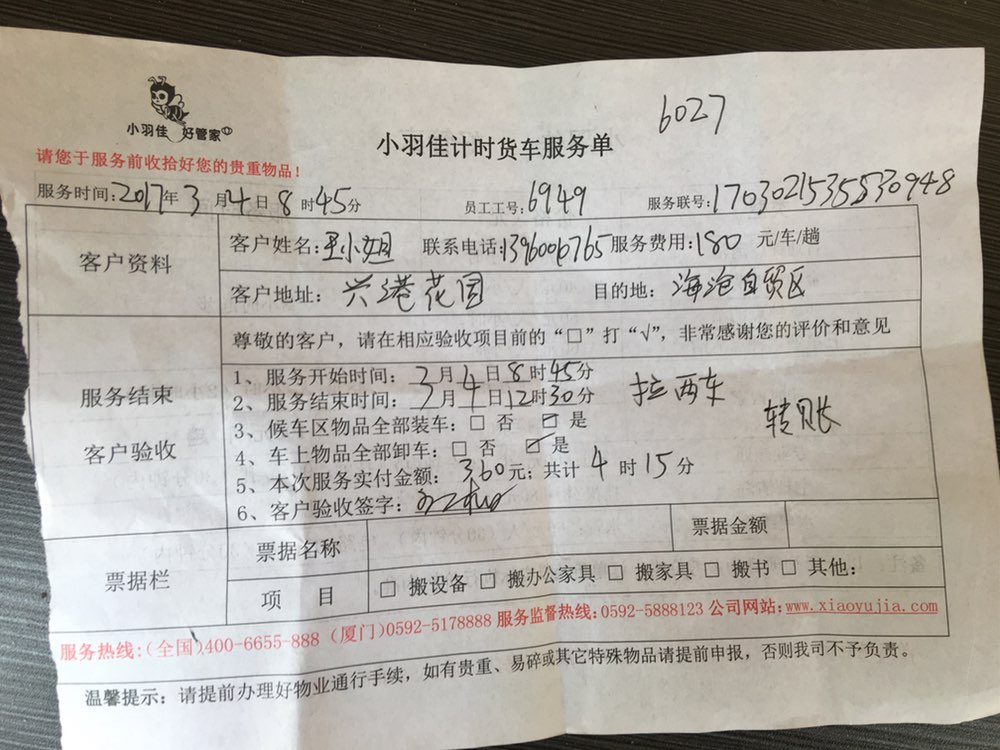 6027
小羽佳 好管家
小羽佳计时货车服务单
请您于服务前收拾好您的贵重物品！
服务时间:2017年3月4日8时45分 员工工号:6949 服务联号:1703021535530948
客户资料
客户姓名:王小姐 联系电话: 服务费用:180元/车/趟
客户地址：兴港花园 目的地：海沧自贸区
服务结束
客户验收
尊敬的客户，请在相应验收项目前的“□”打“√”，非常感谢您的评价和意见
1、服务开始时间：3月4日8时45分
2、服务结束时间：3月4日12时30分
拉两车
转账
3、候车区物品全部装车：□ 否 ☑ 是
4、车上物品全部卸车：□ 否 ☑ 是
5、本次服务实付金额：360元；共计4时15分
6、客户验收签字：
票据栏
票据名称 票据金额
项 目 □ 搬设备 □ 搬办公家具 □ 搬家具 □ 搬书 □ 其他：
服务热线:(全国)400-6655-888 (厦门)0592-5178888 服务监督热线:0592-5888123 公司网站:www.xiaoyujia.com
温馨提示：请提前办理好物业通行手续，如有贵重、易碎或其它特殊物品请提前申报，否则我司不予负责。